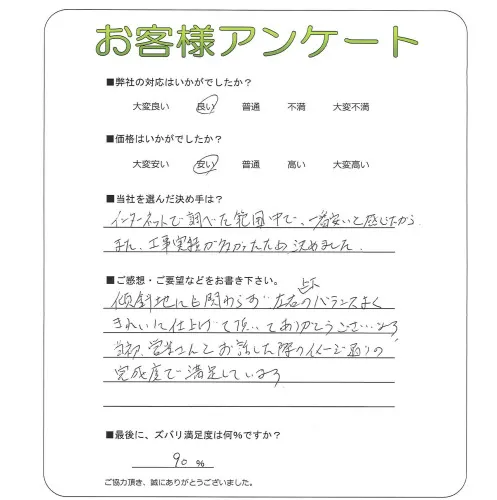 お客様アンケート
■弊社の対応はいかがでしたか？
大変良い 良い 普通 不満 大変不満
■価格はいかがでしたか？
大変安い 安い 普通 高い 大変高い
■当社を選んだ決め手は？
インターネットで調べた範囲中で、一番安いと感じたから
また、工事実績が多かったため、決めました。
■ご感想・ご要望などをお書き下さい。
上下
傾斜地にも関わらず 左右のバランスよく
きれいに仕上げて頂いてありがとうございます
当初、営業さんとお話した際のイメージ通りの
完成度で満足している
■最後に、ズバリ満足度は何％ですか？
90 ％
ご協力頂き、誠にありがとうございました。